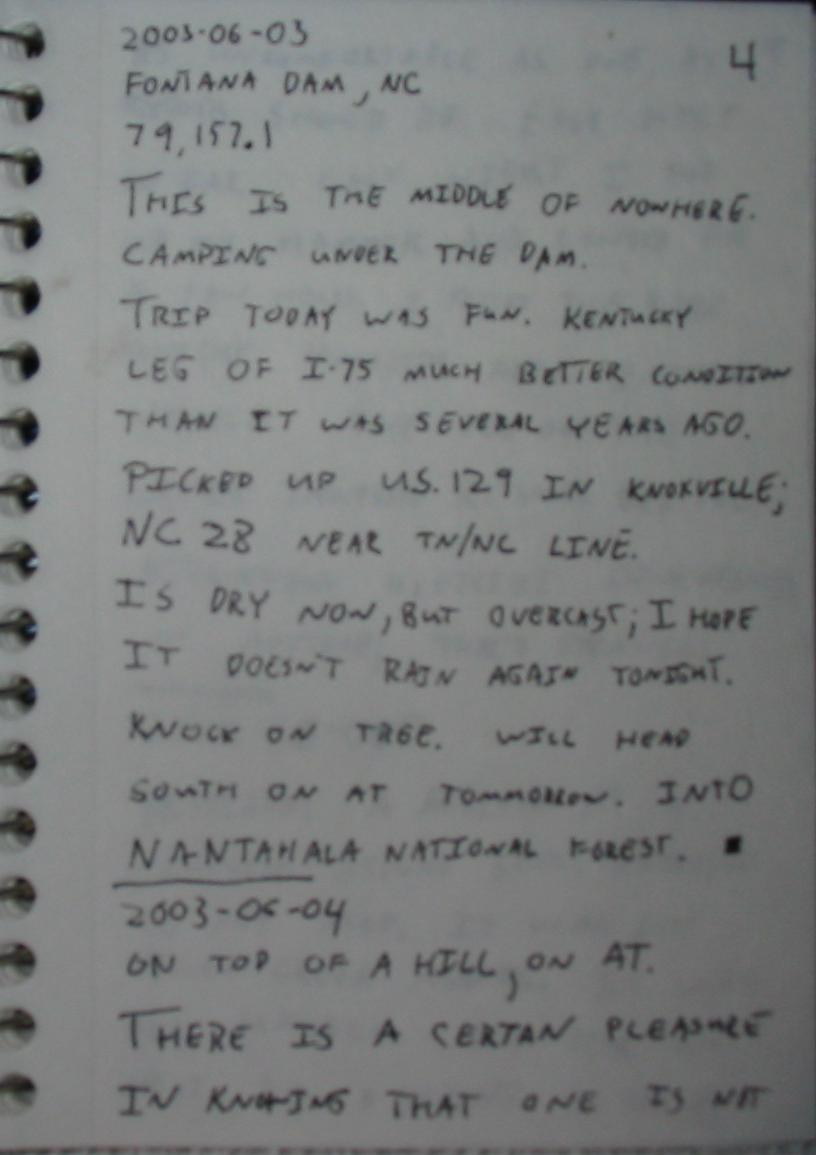 2003-06-03
4
FONTANA DAM, NC
79,157.1
THIS IS THE MIDDLE OF NOWHERE.
CAMPING UNDER THE DAM.
TRIP TODAY WAS FUN. KENTUCKY
LEG OF I-75 MUCH BETTER CONDITION
THAN IT WAS SEVERAL YEARS AGO.
PICKED UP US.129 IN KNOXVILLE;
NC 28 NEAR TN/NC LINE.
IS DRY NOW, BUT OVERCAST; I HOPE
IT DOESN'T RAIN AGAIN TONIGHT.
KNOCK ON TREE. WILL HEAD
SOUTH ON AT TOMMORROW. INTO
NANTAHALA NATIONAL FOREST. ▪
2003-06-04
ON TOP OF A HILL, ON AT.
THERE IS A CERTAN PLEASURE
IN KNOWING THAT ONE IS NOT